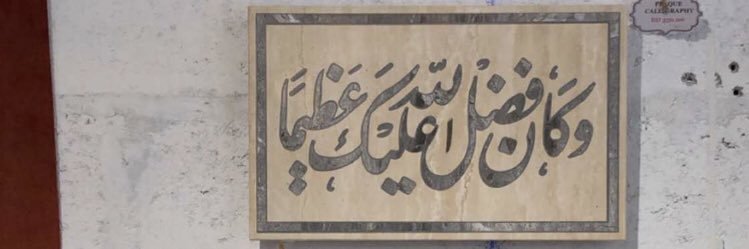 وَكَانَ فَضْلُ اللَّهِ عَلَيْكَ عَظِيمًا
PLAQUE
CALLIGRAPHY